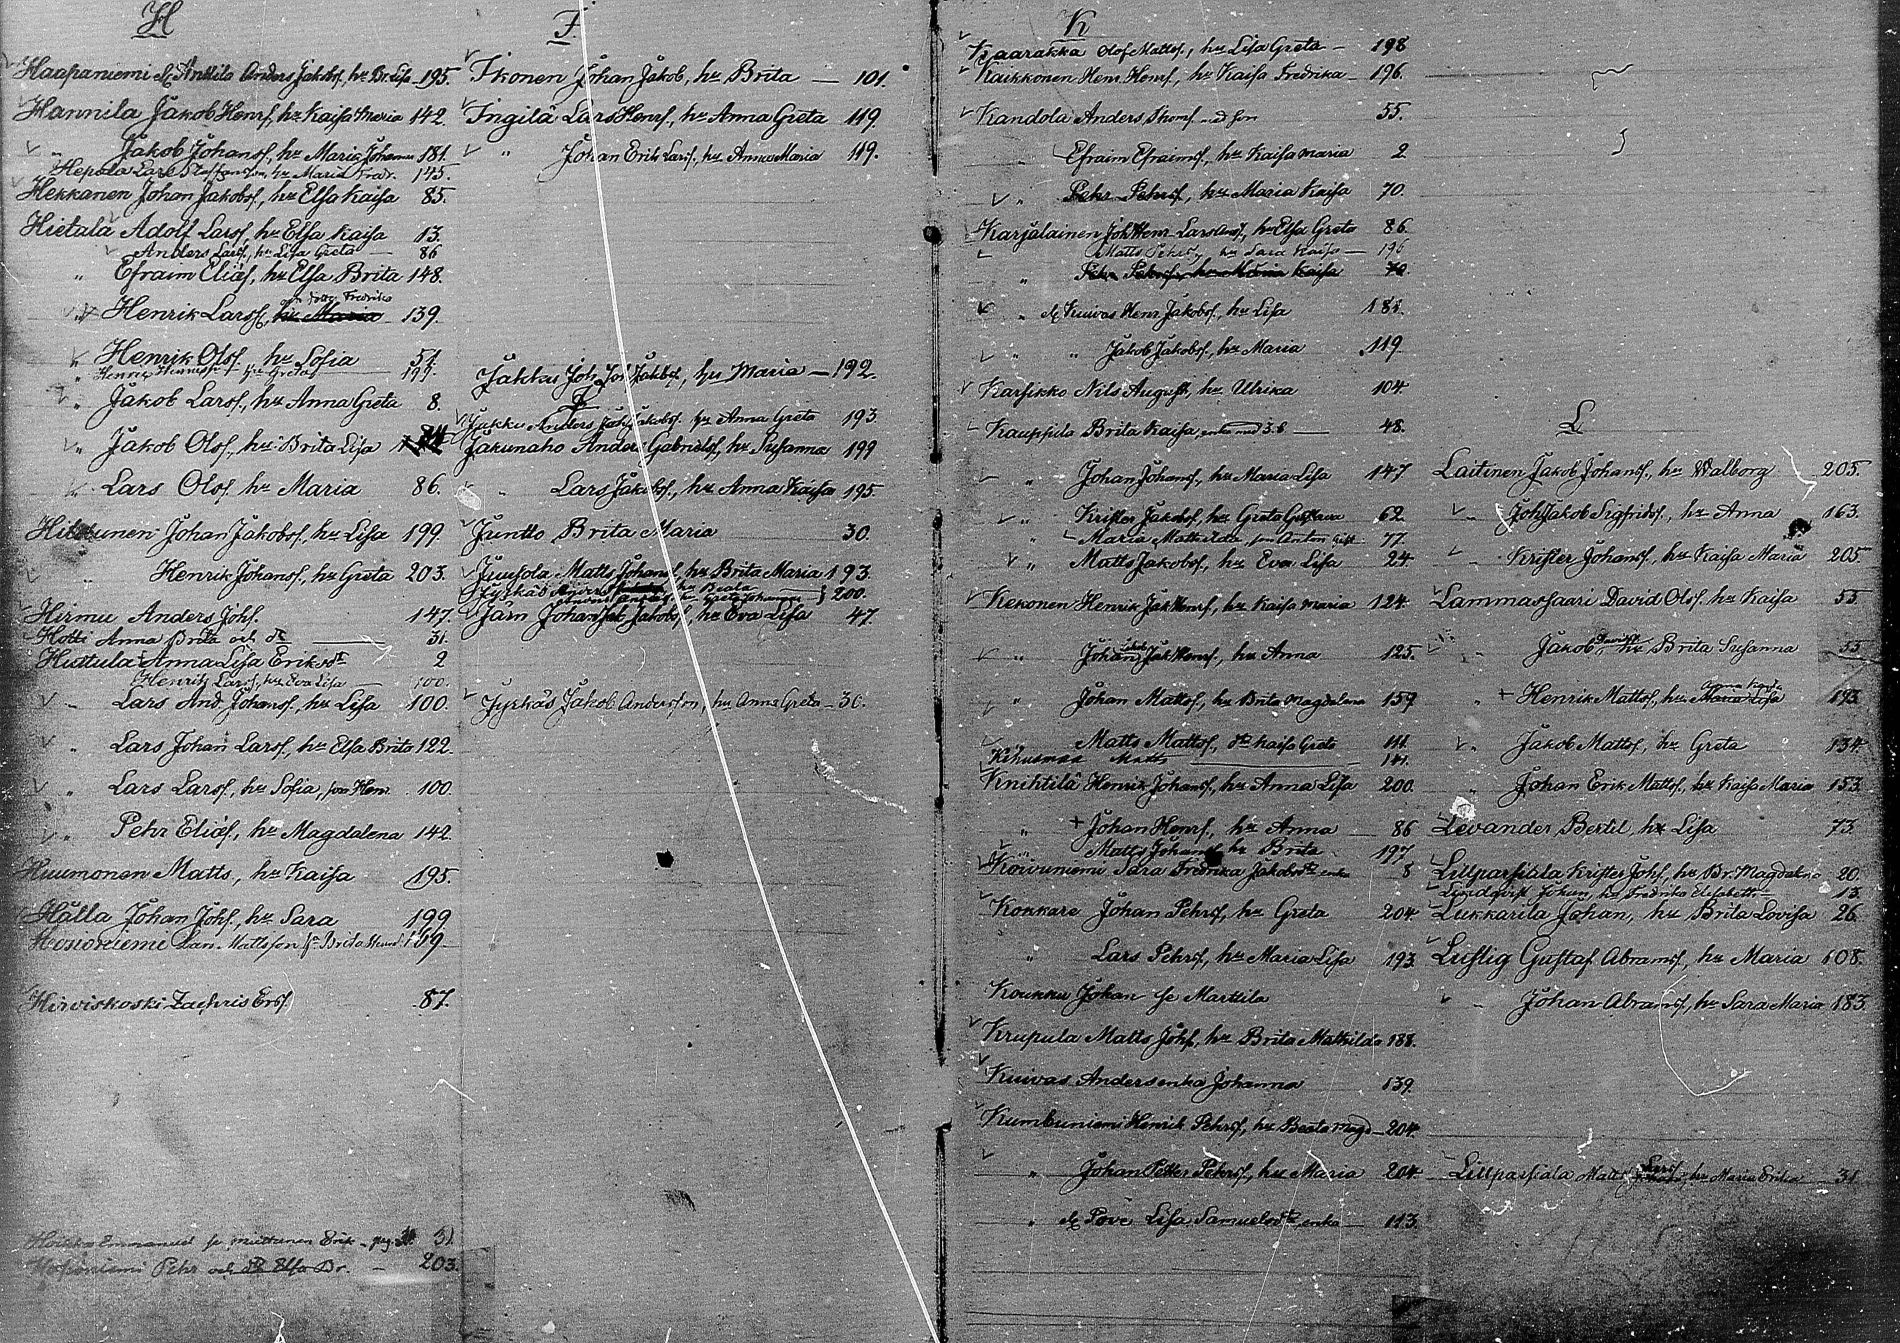 H
Haapaniemi el. Anttila Anders Jakobs., hu Br. Lisa 195.
Hannila Jakob Henrs., hu Kaisa Maria 142
" Jakob Johans., hu Maria Johanna 181.
Hepola Lars Staffansson, hu Maria Fredr. 145.
Hekkanen Johan Jakobs., hu Elsa Kaisa 85.
Hietala Adolf Larss., hu Elsa Kaisa 13.
Anders Larss., hu Lisa Greta — 86
" Efraim Eliæs., hu Elsa Brita 148.
Fredrika
" Henrik Larss., hu Maria 139.
" Henrik Olofs., hu Sofia 51
" Henrik Henrikss. hu Greta
" Jakob Larss., hu Anna Greta 8.
" Jakob Olofs., hu Brita Lisa
" Lars Olofs. hu Maria 86.
Hiltunen Johan Jakobs., hu Lisa 199.
" Henrik Johans., hu Greta 203.
Hirmu Anders Johs. 147.
Hotti Anna Brita och dr 31.
Huttula Anna Lisa Eriksdr 2
Henrik Larss., hu Eva Lisa — 100.
" Lars And. Johans., hu Lisa 100.
" Lars Johan Larss., hu Elsa Brita 122.
" Lars Larss., hu Sofia, son Henr. 100.
" Pehr Eliæs., hu Magdalena 142
Huumonen Matts, hu Kaisa 195.
Hälla Johan Johs., hu Sara 199
Lars Mattsson hu Brita
Hirviskoski Zachris Ers. 87.
Emmanuel se Muttanen Erik pag. 31
Pehr och dr Elsa Br. — 203.
I.
Ikonen Johan Jakob, hu Brita — 101.
Ingilä Lars Henrs., hu Anna Greta 119.
" Johan Erik Larss., hu Anna Maria 119.
Jakku Joh. Joh. Jakobs., hu Maria — 192.
J
Jakku Anders Jakobs. hu Anna Greta 193
Jakunaho Anders Gabriels., hu Susanna 199
" Lars Jakobs., hu Anna Kaisa 195.
Juntto Brita Maria 30.
Juusola Matts Johans., hu Brita Maria 193.
Jyskäs Anders 200.
Järn Johan Jakobs., hu Eva Lisa 47.
Jyrkäs Jakob Andersson, hu Anna Greta — 30.
K
Kaarakka Olof Mattss., hu Lisa Greta — 198
Kaikkonen Henr. Henrs., hu Kaisa Fredrika — 196.
Kandola Anders Thoms. med son 55.
Efraim Efraims., hu Kaisa Maria 2
" Pehr Pehrs., hu Maria Kaisa 70.
Karjalainen Joh. Henr. Larss., hu Elsa Greta 86.
Matts Pehrs., hu Sara Kaisa — 196
" Pehr Pehrs., hu Maria Kaisa 70
" el. Kuivas Henr. Jakobs., hu Lisa 181.
" " Jakob Jakobs., hu Maria 119
Karsikko Nils August, hu Ulrika 104.
Kauppila Brita Kaisa, enka med 3. b. — 48.
" Johan Johans., hu Maria Lisa 147
" Krister Jakobs., hu Greta Gustava 62
" Maria Mathilda, son Anton 77.
" Matts Jakobs., hu Eva Lisa 24.
Kekonen Henrik Jak. Henrs., hu Kaisa Maria 124.
" Johan Jak. Henrs., hu Anna 125.
" Johan Mattss., hu Brita Magdalena 159
" Matts Mattss., dr Kaisa Greta 141.
Kihuumaa Matts — 141.
Knihtilä Henrik Johans., hu Anna Lisa 200.
" + Johan Henrs., hu Anna — 86
" Matts Johans. hu Brita 197
Koivuniemi Sara Fredrika Jakobsdr enka 8
Kokkare Johan Pehrs., hu Greta 204
" Lars Pehrs., hu Maria Lisa 193
Koukku Johan se Marttila
Krupula Matts Johs., hu Brita Mathilda 188.
Kuivas Anders enka Johanna 139
Kumbuniemi Henrik Pehrs., hu Beata Magd — 204.
" Johan Petter Pehrs., hu Maria 204
" el. Pove Lisa Samuelsdr enka — 113.
L
Laitinen Jakob Johans., hu Walborg 205.
" Joh. Jakob Sigfrids., hu Anna 163.
" Krister Johans., hu Kaisa Maria 205.
Lammassaari David Olofs. hu Kaisa 55
" Jakob Davids. hu Brita Susanna 55
" + Henrik Mattss., hu Maria Lisa 193
" Jakob Mattss., hu Greta 134
" Johan Erik Mattss., hu Kaisa Maria 153.
Levander Bertil, hu Lisa 73.
Lillparsiala Krister Johs., hu Br. Magdalena 20.
Lindqvist Johan, hu Fredrika Elisabeth 13.
Lukkarila Johan, hu Brita Lovisa 26.
Lustig Gustaf Abrams., hu Maria 108.
" Johan Abrams., hu Sara Maria 183.
Lillparsiala Matts Larss., hu Maria Erika — 31